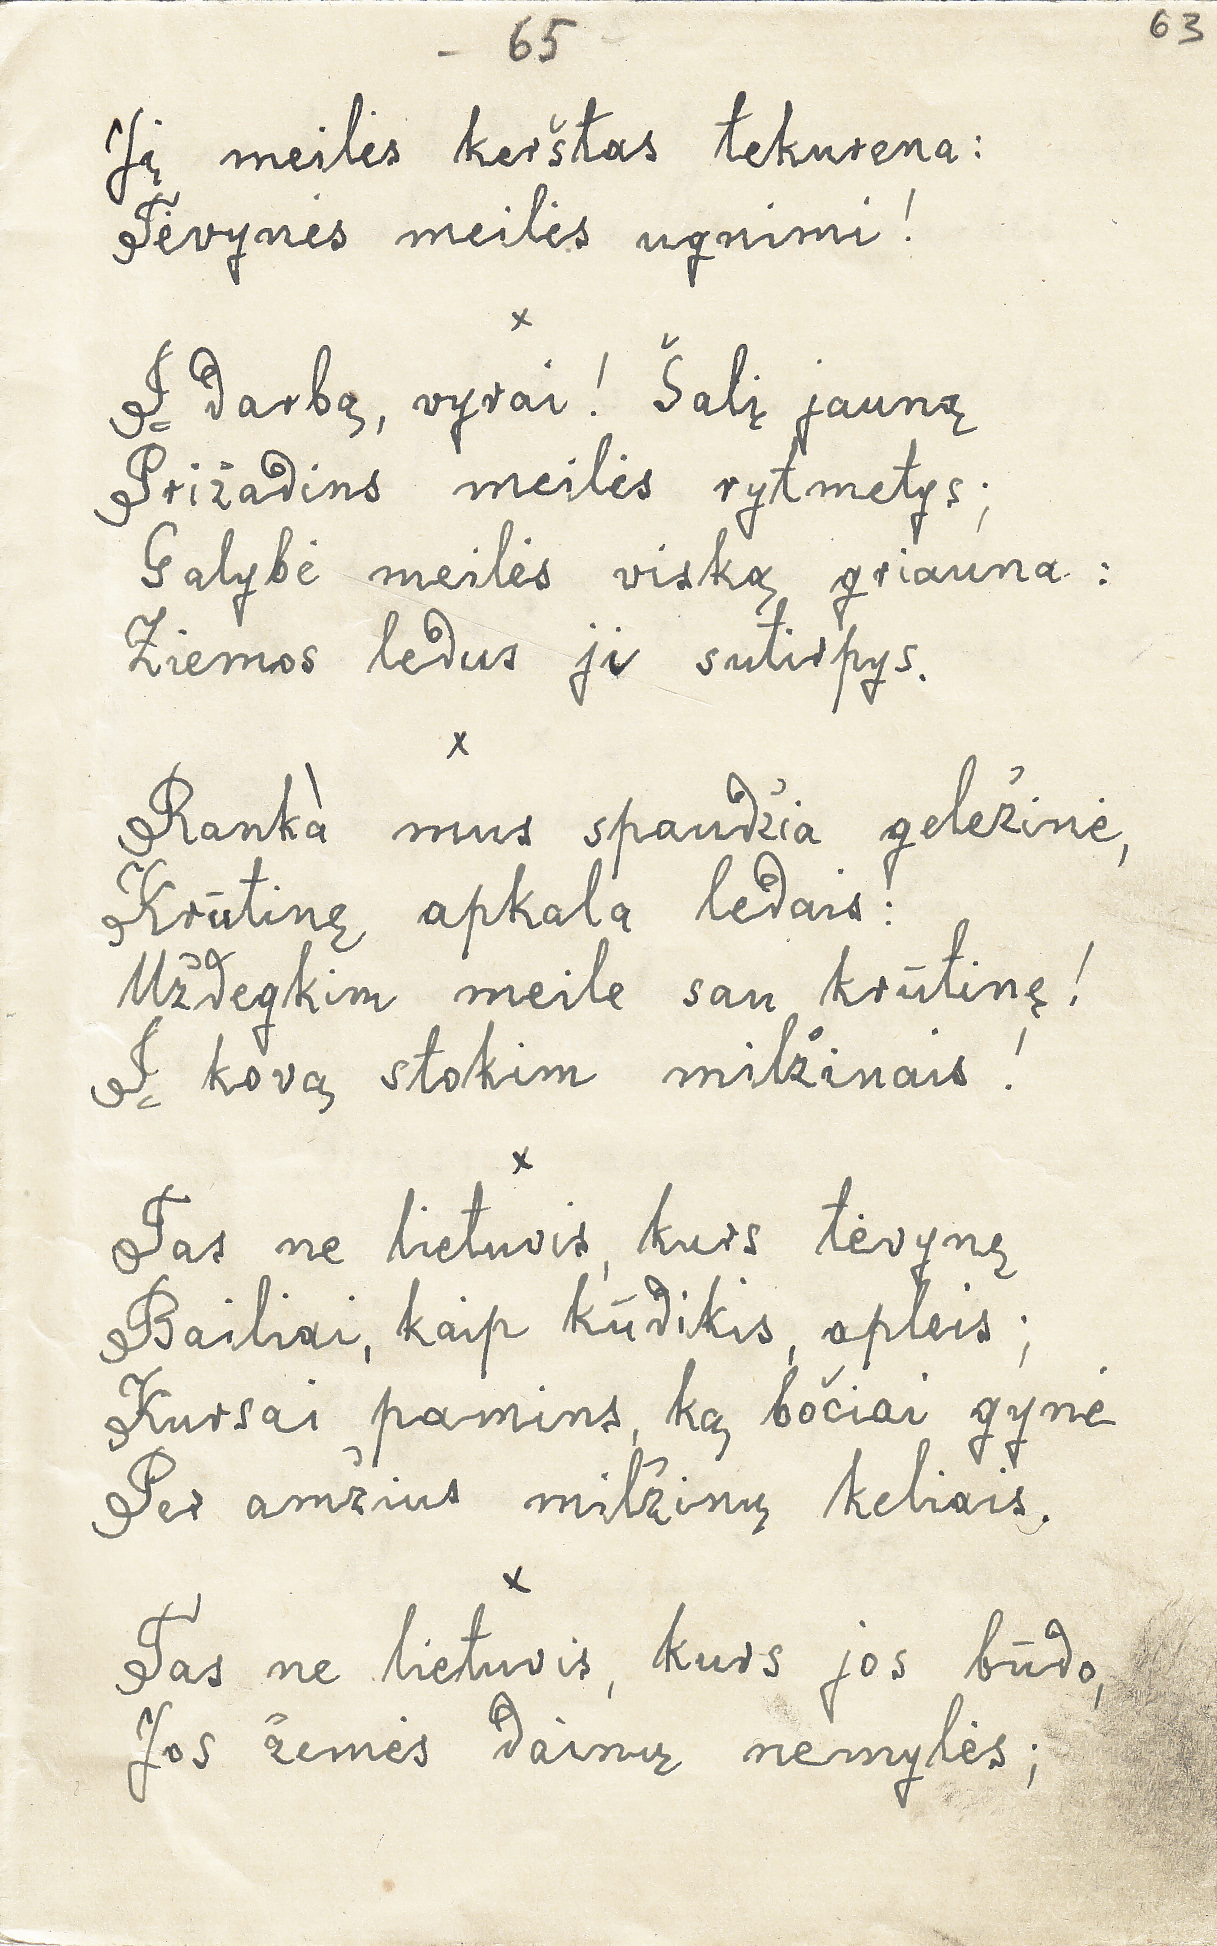 - 65 -
63
Ją meilės kerštas tekurena:
Tėvynės meilės ugnimi!
x
Į darbą, vyrai! Šalį jauną
Prižadins meilės rytmetys;
Galybė meilės viską griauna:
Žiemos ledus ji sutirpys.
x
Rankà mus spaudžia geležinė,
Krūtinę apkala ledais:
Uždegkim meile sau krūtinę!
Į kovą stokim milžinais!
x
Tas ne lietuvis, kurs tėvynę
Bailiai, kaip kūdikis, apleis;
Kursai pamins, ką bočiai gynė
Per amžius milžinų keliais.
x
Tas ne lietuvis, kurs jos būdo,
Jos žemės dainų nemylės;